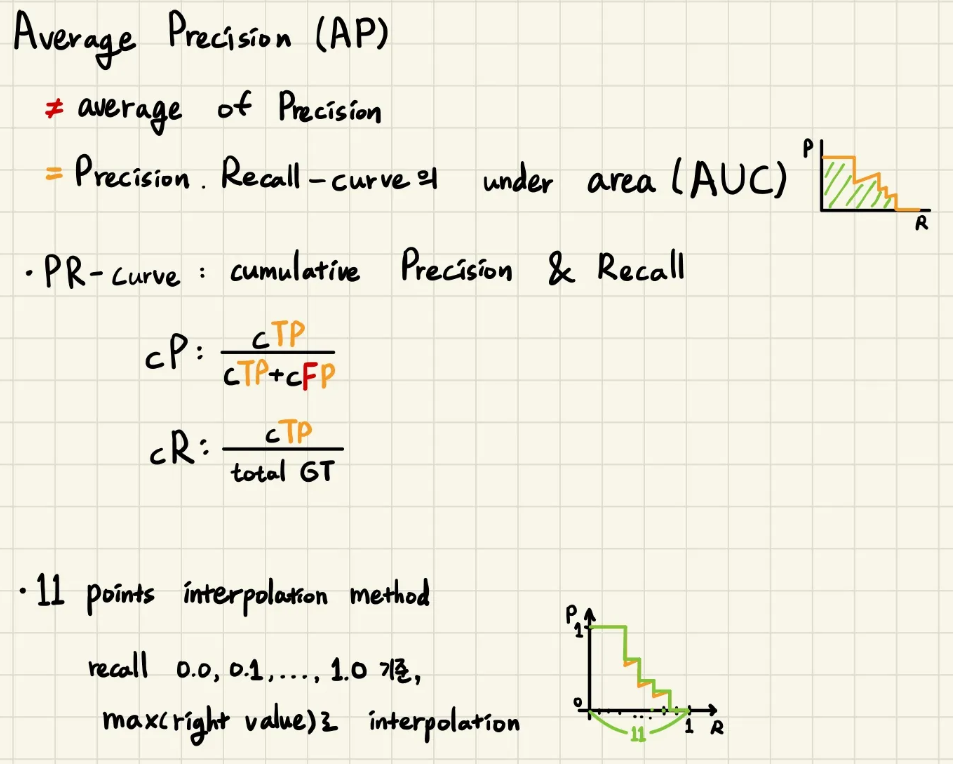 Average Precision (AP)
≠ average of Precision
= Precision. Recall-curve의 under area (AUC)
P
R
· PR-curve : cumulative Precision & Recall
cP: cTP / cTP+cFP
cR: cTP / total GT
· 11 points interpolation method
recall 0.0, 0.1, ..., 1.0 기준,
max(right value)로 interpolation
P
1
0
11
1 R